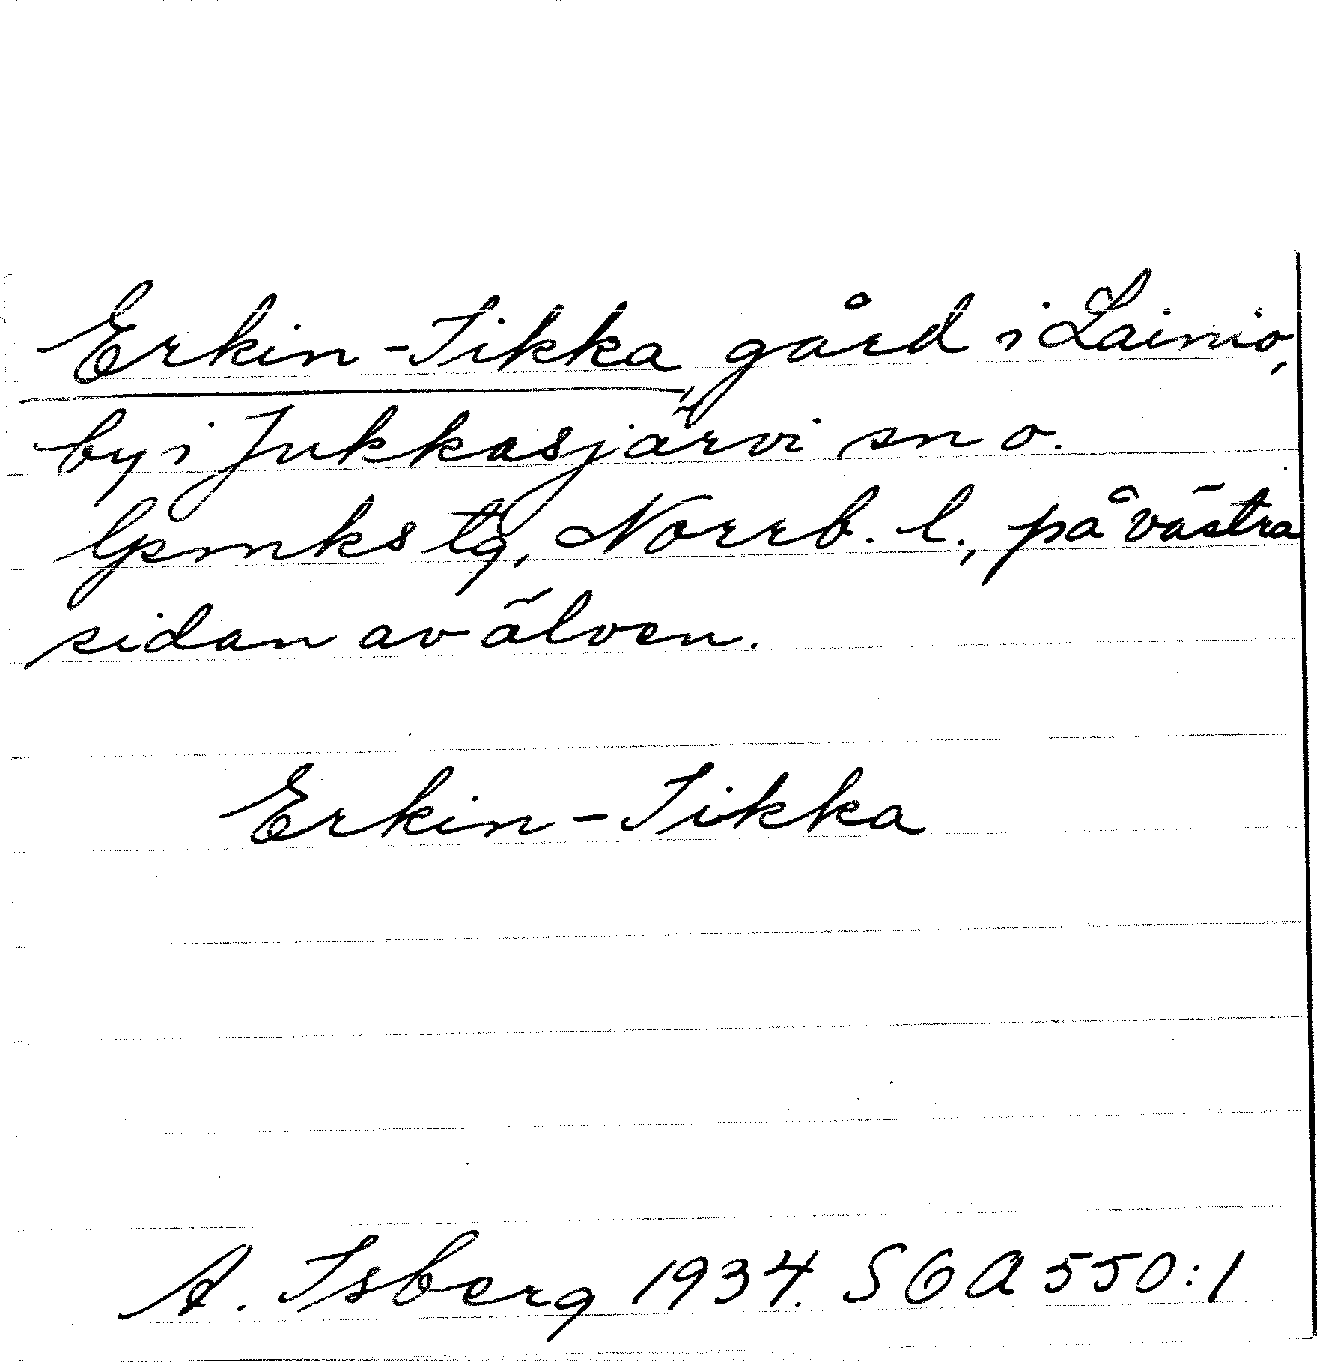 Erkin-Iikka, gård i Lainio,
by i Jukkasjärvi sn o.
lpmks tg, Norrb. l., på västra
sidan av älven.
Erkin-Iikka
A. Isberg 1934. SOA 550:1